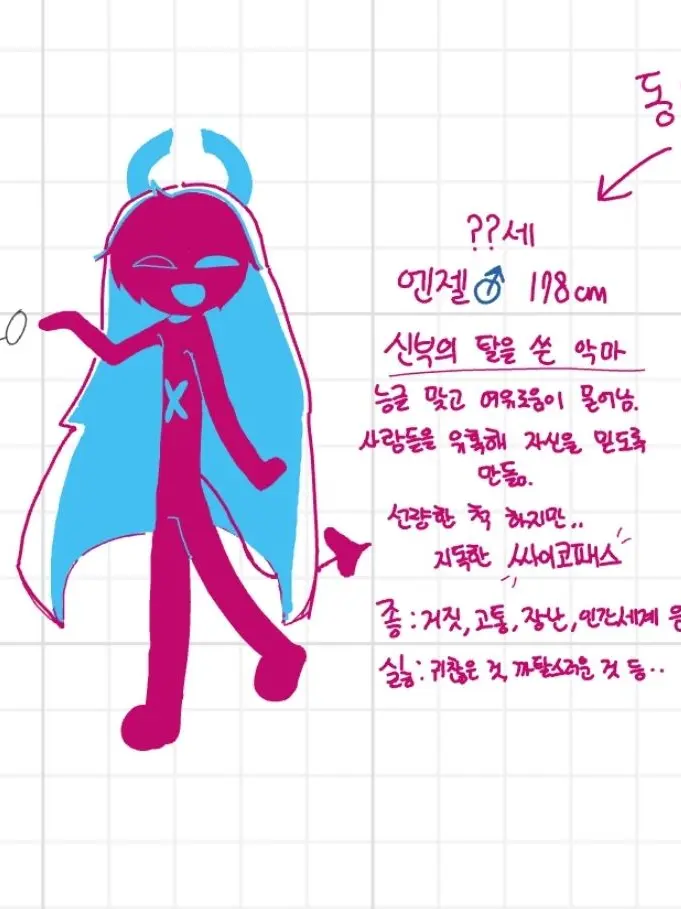 동
??세
엔젤♂ 178cm
신부의 탈을 쓴 악마
능글 맞고 여유로움이 묻어남.
사람들을 유혹해 자신을 믿도록
만듦.
선량한 척 하지만..
지독한 싸이코패스
좋 : 거짓, 고통, 장난, 인간세계 음
싫 : 귀찮은 것, 까탈스러운 것 등..